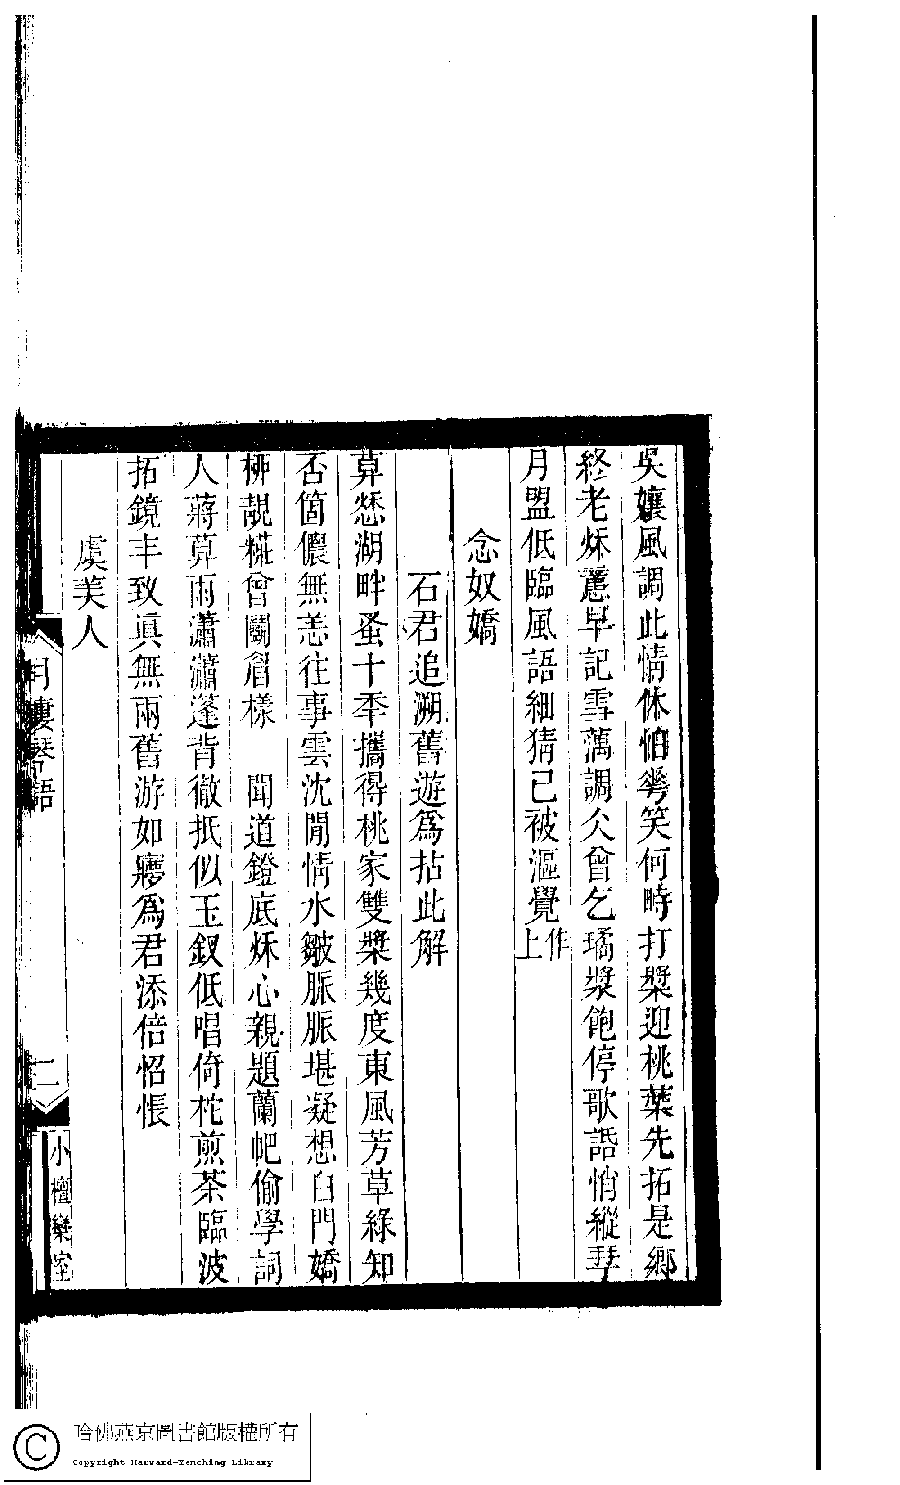 吳孃風調此情休怕嘦笑何時打槳迎桃葉先拓是鄉
終老烁蕙早記雪藕調父曾乞璚漿飽停歌語悄縱孠
月盟低臨風語細猜已被漚覺上作
念奴嬌
石君追溯舊遊爲拈此解
莫愁湖畔蚤十秊攜得桃家雙槳幾度東風芳草綠知
否箇儂無恙往事雲沈閒情水皺脈脈堪凝想白門嬌
柳靚糚曾鬭眉樣 聞道鐙底烁心親題蘭帊偷學詞
人蔣莫雨瀟瀟蓬背徹抵似玉釵低唱倚柁煎茶臨波
拓鏡丰致眞無兩舊游如寱爲君添倍怊悵
虞美人
月樓琴語
二
小檀欒室
哈佛燕京圖書館版權所有
Copyright Harvard-Yenching Library